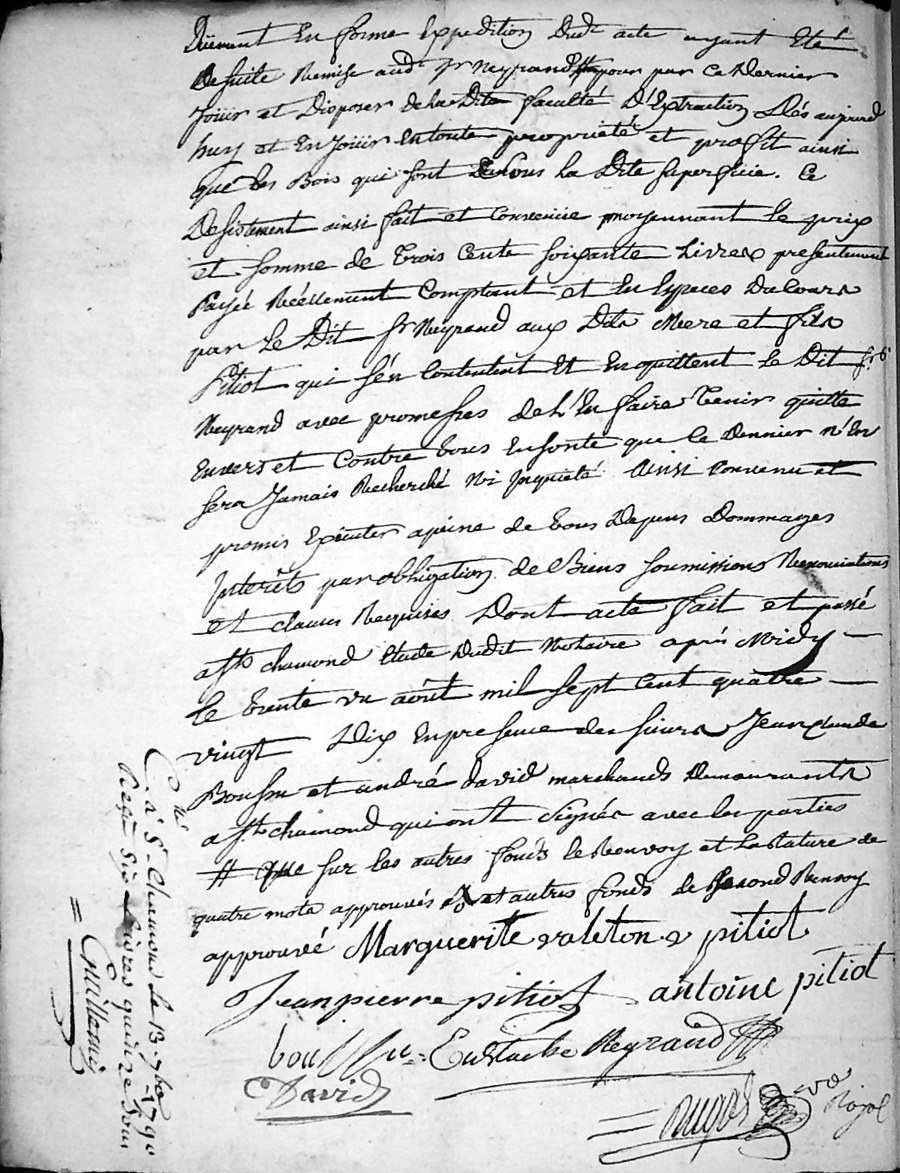 Düement En forme Expedition Dudt acte ayant Eté
de suite Remise audt Sr Neyrand # pour par ce Dernier
Joüir et Disposer de la Dite faculté D'Extraction Dès aujourd
huy et En Joüir En toute propriété et profit ainsi
que des Bois qui sont Dessous la Dite superficie. Ce
Desistement ainsi fait et convenue moyennant le prix
et somme de Trois Cents soixante Livres presentement
Payée Réellement Comptant et En Espèces Du Cours
par Le Dit Sr Neyrand aux Dits Mere et fils
Pitiot qui s'en Contentent Et En quittent le Dit Sr
Neyrand avec promesses de L'En faire Tenir quitte
Envers et Contre tous En sorte que ce Dernier n'En
sera Jamais Recherché Ni Inquieté. Ainsi Convenu et
promis Exécuter a peine de tous Depens Dommages
Interêts par obligation de Biens soumissions Renonciations
et clauses Requises Dont acte fait et passé
a St chamond Etude Dudit Notaire après Midy
le trente un août mil sept cent quatre
vingt Dix En presence des sieurs Jean Claude
Boussu et andré david marchands Demeurants
a St chamond qui ont Signés avec les parties
# que sur les autres fonds le Renvoy et la Rature de
quatre mots approuvés et autres fonds de Second Renvoy
approuvé Marguerite valeton v pitiot
Jean pierre pitiot antoine pitiot
boussu Eustache Neyrand
David
Dugas
Royal
Cté à St Chamond le 13 7bre 1790
Reçu Six Livres quinze Sous
= Guillaume